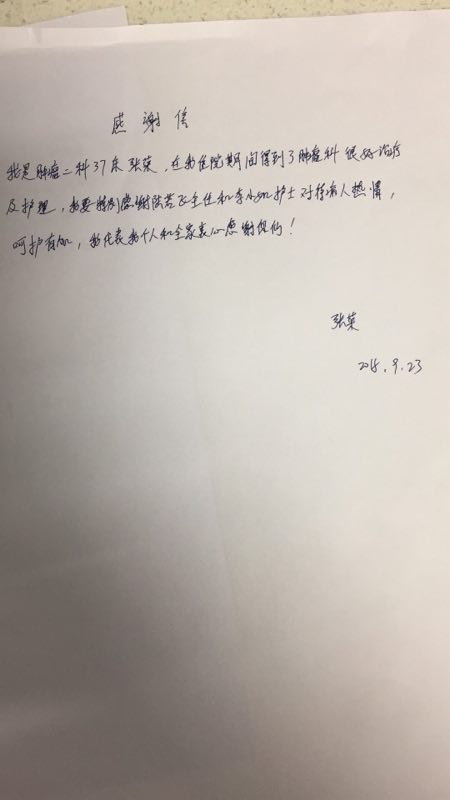 感谢信
我是肿瘤二科37床张荣，在我住院期间得到了肿瘤科很好治疗
及护理，我要特别感谢陆 主任和李 护士对待病人热情，
呵护有加，我代表我个人和全家衷心感谢他们！
张荣
2018.9.23